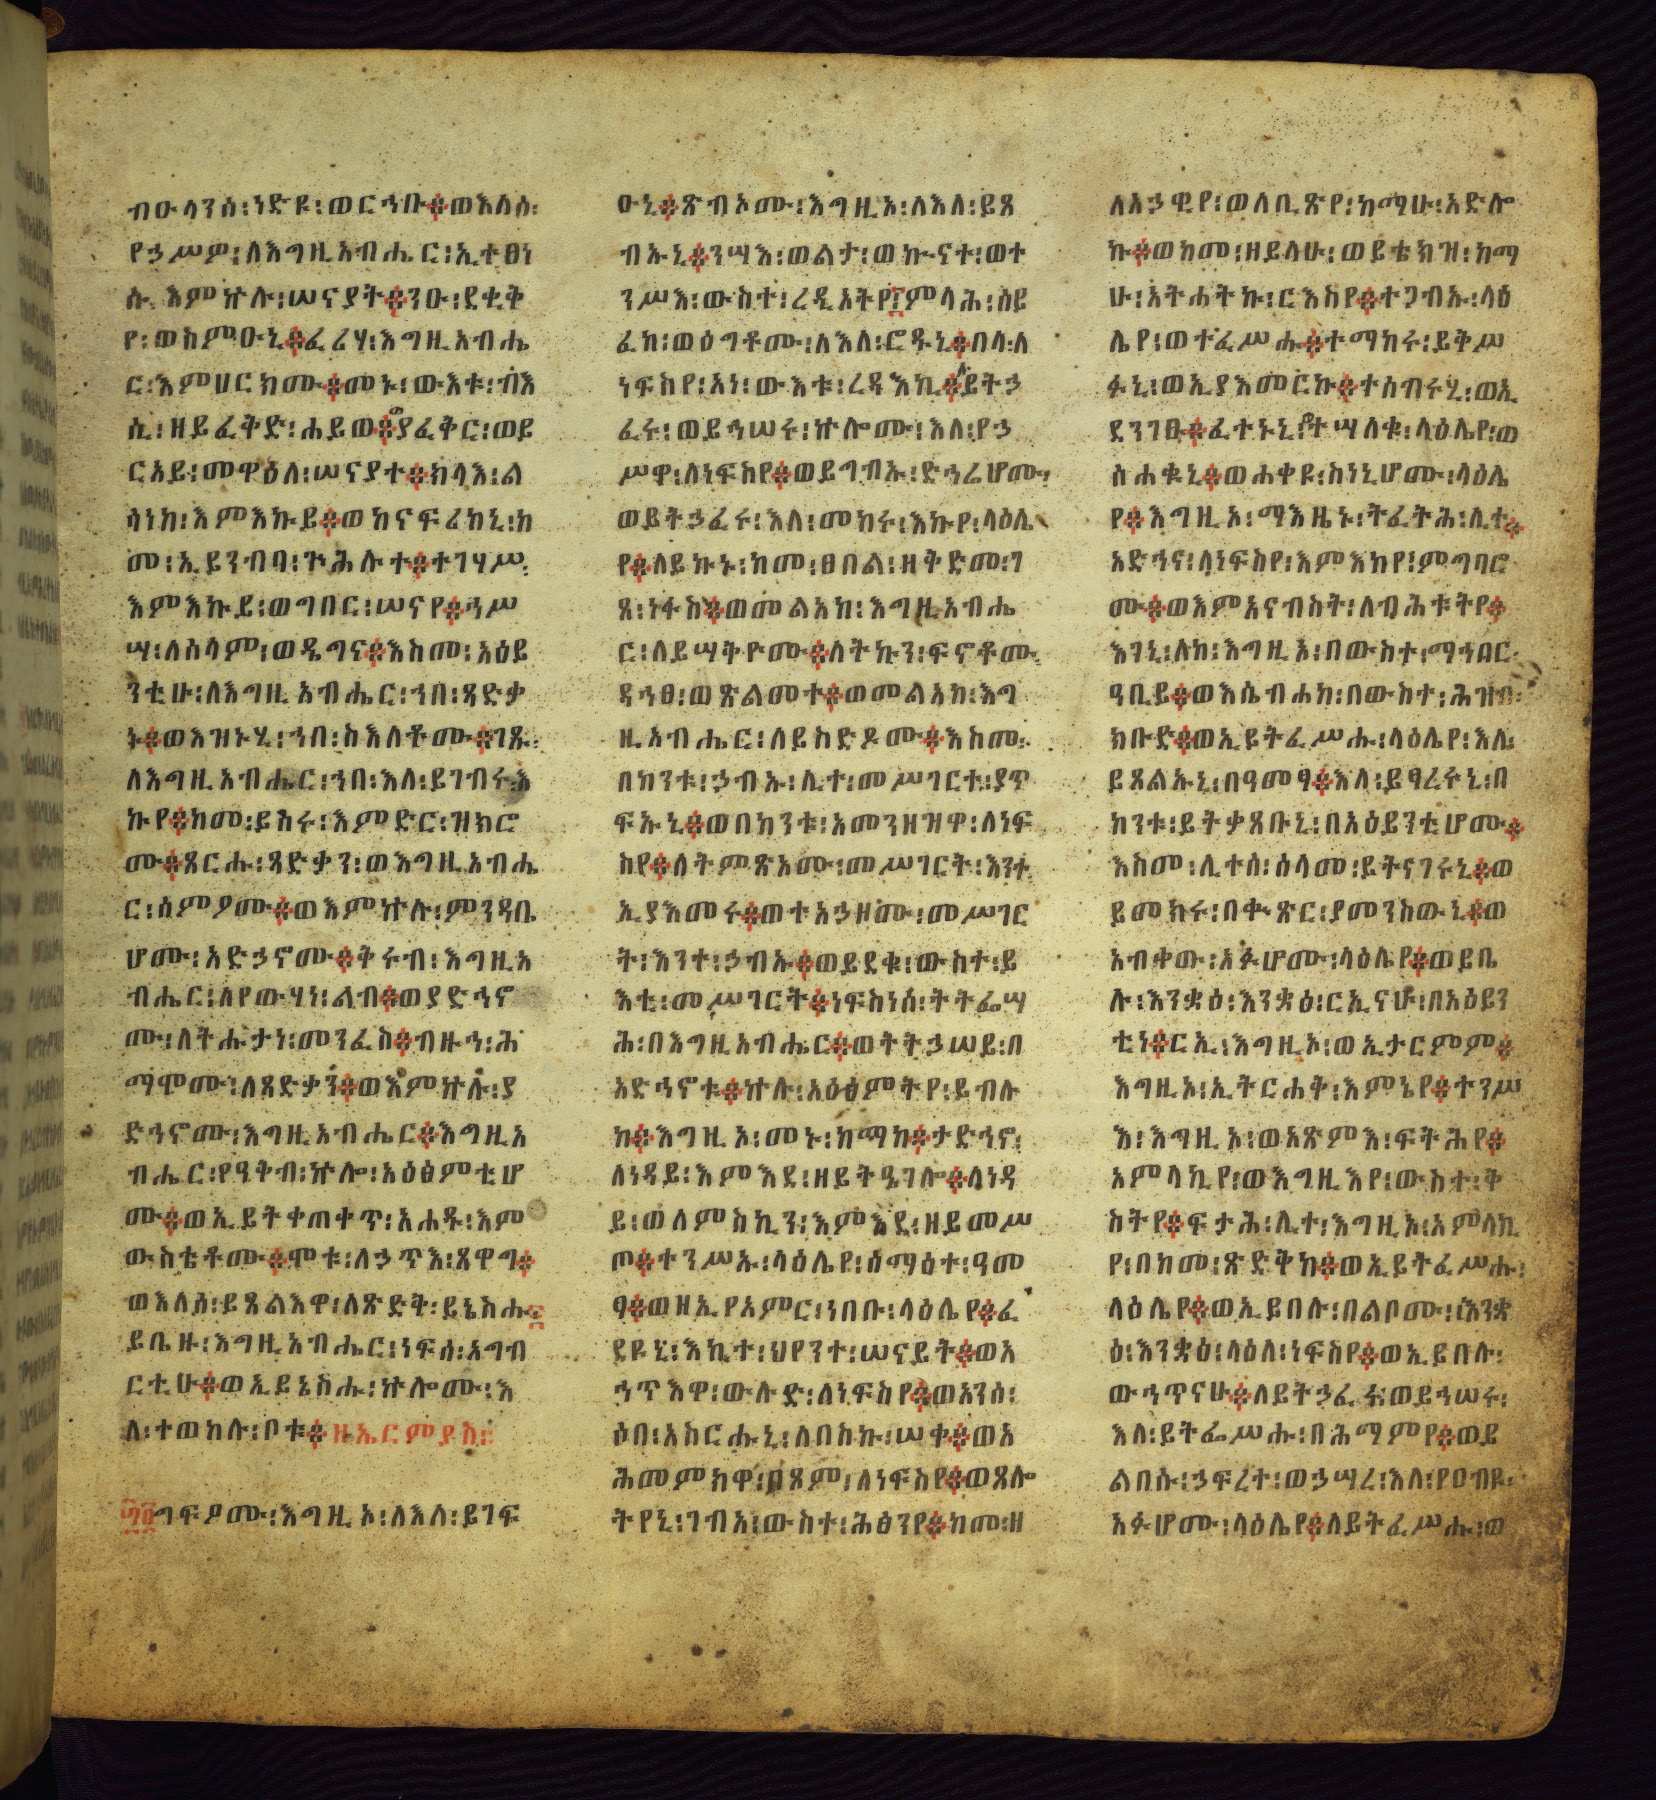 ብዑላንሰ፡ነድዩ፡ወርኅቡ፨ወእለሰ፡
የኃሥሥ፡ለእግዚአብሔር፡ኢተፀነ
ሱ፡እምኵሉ፡ሠናያት፨ንዑ፡ደቂቅ
የ፡ወስምዑኒ፨ፈሪሃ፡እግዚአብሔ
ር፡እምሀርክሙ፨መኑ፡ውእቱ፡ብእ
ሲ፡ዘይፈቅድ፡ሐይወ፨ያፈቅር፡ወይ
ርአይ፡መዋዕለ፡ሠናያተ፨ክላእ፡ል
ሳነከ፡እምእኩይ፨ወከናፍሪከኒ፡ከ
መ፡ኢይንብባ፡ጕሕሉተ፨ተገሃሥ፡
እምእኩይ፡ወግበር፡ሠናየ፨ኅሥ
ሣ፡ለሰላም፡ወዴግና፨እስመ፡አዕይ
ንቲሁ፡ለእግዚአብሔር፡ኀበ፡ጻድቃ
ኑ፨ወእዝኑሂ፡ኀበ፡ስእለቶሙ፨ገጹ፡
ለእግዚአብሔር፡ኀበ፡እለ፡ይገብሩ፡እ
ኩየ፨ከመ፡ይስሩ፡እምድር፡ዝክሮ
ሙ፨ጸርሑ፡ጻድቃን፡ወእግዚአብሔ
ር፡ሰምዖሙ፨ወእምኵሉ፡ምንዳቤ
ሆሙ፡አድኃኖሙ፨ቅሩብ፡እግዚአ
ብሔር፡ለየውሃነ፡ልብ፨ወያድኅኖ
ሙ፡ለትሑታነ፡መንፈስ፨ብዙኅ፡ሕ
ማሞሙ፡ለጻድቃን፨ወእምኵሉ፡ያ
ድኅኖሙ፡እግዚአብሔር፨እግዚአ
ብሔር፡የዓቅብ፡ኵሎ፡አዕፅምቲሆ
ሙ፨ወኢይትቀጠቀጥ፡አሐዱ፡እም
ውስቴቶሙ፨ሞቱ፡ለኃጥእ፡ጸዋግ፨
ወእለሰ፡ይጸልእዋ፡ለጽድቅ፡ይኔስሑ፨
ይቤዙ፡እግዚአብሔር፡ነፍሰ፡አግብ
ርቲሁ፨ወኢይኔስሑ፡ኵሎሙ፡እ
ለ፡ተወከሉ፡ቦቱ፨ዘኤርምያስ፨
ግፍዖሙ፡እግዚኦ፡ለእለ፡ይገፍ
ዑኒ፨ጽብኦሙ፡እግዚኦ፡ለእለ፡ይጸ
ብኡኒ፨ንሣእ፡ወልታ፡ወኲናተ፡ወተ
ንሥእ፡ውስተ፡ረዲኦትየ፨ምላሕ፡ሰይ
ፈከ፡ወዕግቶሙ፡ለእለ፡ሮዱኒ፨በላ፡ለ
ነፍስየ፡አነ፡ውእቱ፡ረዳእኪ፨ለይትኃ
ፈሩ፡ወይኅሠሩ፡ኵሎሙ፡እለ፡የኃ
ሥዋ፡ለነፍስየ፨ወይግብኡ፡ድኅሬሆሙ፡
ወይትኃፈሩ፡እለ፡መከሩ፡እኩየ፡ላዕሌ
የ፨ለይኩኑ፡ከመ፡ፀበል፡ዘቅድመ፡ገ
ጸ፡ነፋስ፨ወመልአከ፡እግዚአብሔ
ር፡ለይሣቅዮሙ፨ለትኩን፡ፍኖቶሙ
ዳኅፀ፡ወጽልመተ፨ወመልአከ፡እግ
ዚአብሔር፡ለይስድዶሙ፨እስመ፡
በከንቱ፡ኃብኡ፡ሊተ፡መሥገርተ፡ያጥ
ፍኡኒ፨ወበከንቱ፡አመንዘዝዋ፡ለነፍ
ስየ፨ለትምጽአሙ፡መሥገርት፡እንተ
ኢያእመሩ፨ወተአኃዞሙ፡መሥገር
ት፡እንተ፡ኃብኡ፨ወይደቁ፡ውስተ፡ይ
እቲ፡መሥገርት፨ነፍስየሰ፡ትትፌሣ
ሕ፡በእግዚአብሔር፨ወትትኃሠይ፡በ
አድኅኖቱ፨ኵሉ፡አዕፅምትየ፡ይብሉ
ከ፨እግዚኦ፡መኑ፡ከማከ፨ታድኅኖ፡
ለነዳይ፡እምእደ፡ዘይትዔገሎ፨ለነዳ
ይ፡ወለምስኪን፡እምእደ፡ዘይመሥ
ጦ፨ተንሥኡ፡ላዕሌየ፡ሰማዕተ፡ዓመ
ፃ፨ወዘኢየአምር፡ነበቡ፡ላዕሌየ፨ፈ
ደዩኒ፡እኪተ፡ህየንተ፡ሠናይት፨ወአ
ኅጥእዋ፡ውሉድ፡ለነፍስየ፨ወአንሰ፡
ሶበ፡አስርሑኒ፡ለበስኩ፡ሠቀ፨ወአ
ሕመምክዋ፡በጾም፡ለነፍስየ፨ወጸሎ
ትየኒ፡ገብአ፡ውስተ፡ሕፅንየ፨ከመ፡ዘ
ለአኃዊየ፡ወለቢጽየ፡ከማሁ፡አድሎ
ኩ፨ወከመ፡ዘይላሁ፡ወይቴክዝ፡ከማ
ሁ፡አትሐትኩ፡ርእስየ፨ተጋብኡ፡ላዕ
ሌየ፡ወተፈሥሑ፨ተማከሩ፡ይቅሥ
ፉኒ፡ወኢያእመርኩ፨ተሰብሩሂ፡ወኢ
ደንገፁ፨ፈተኑኒ፡ተሣለቁ፡ላዕሌየ፡ወ
ስሐቁኒ፨ወሐቀዩ፡ስነኒሆሙ፡ላዕሌ
የ፨እግዚኦ፡ማእዜኑ፡ትፈትሕ፡ሊተ፨
አድኅና፡ለነፍስየ፡እምእከየ፡ምግባሮ
ሙ፨ወእምአናብስት፡ለብሕቱትየ፨
እገኒ፡ለከ፡እግዚኦ፡በውስተ፡ማኅበር፡
ዓቢይ፨ወእሴብሐከ፡በውስተ፡ሕዝብ፡
ክቡድ፨ወኢይትፈሥሑ፡ላዕሌየ፡እለ፡
ይጸልኡኒ፡በዓመፃ፨እለ፡ይፃረሩኒ፡በ
ከንቱ፡ይትቃጸቡኒ፡በአዕይንቲሆሙ፨
እስመ፡ሊተሰ፡ሰላመ፡ይትናገሩኒ፨ወ
ይመክሩ፡በቍጽር፡ያመንስውኒ፨ወ
አብቀው፡አፉሆሙ፡ላዕሌየ፨ወይቤ
ሉ፡እንቋዕ፡እንቋዕ፡ርኢናሁ፡በአዕይን
ቲነ፨ርኢ፡እግዚኦ፡ወኢታርምም፨
እግዚኦ፡ኢትርሐቅ፡እምኔየ፨ተንሥ
እ፡እግዚኦ፡ወአጽምእ፡ፍትሕየ፨
አምላኪየ፡ወእግዚእየ፡ውስተ፡ቅ
ስትየ፨ፍታሕ፡ሊተ፡እግዚኦ፡አምላኪ
የ፡በከመ፡ጽድቅከ፨ወኢይትፈሥሑ፡
ላዕሌየ፨ወኢይበሉ፡በልቦሙ፡እንቋ
ዕ፡እንቋዕ፡ላዕለ፡ነፍስየ፨ወኢይበሉ፡
ውኅጥናሁ፨ለይትኃፈሩ፡ወይኅሠሩ፡
እለ፡ይትፌሥሑ፡በሕማምየ፨ወይ
ልበሱ፡ኃፍረተ፡ወኃሣረ፡እለ፡የዐብዩ፡
አፉሆሙ፡ላዕሌየ፨ለይትፈሥሑ፡ወ